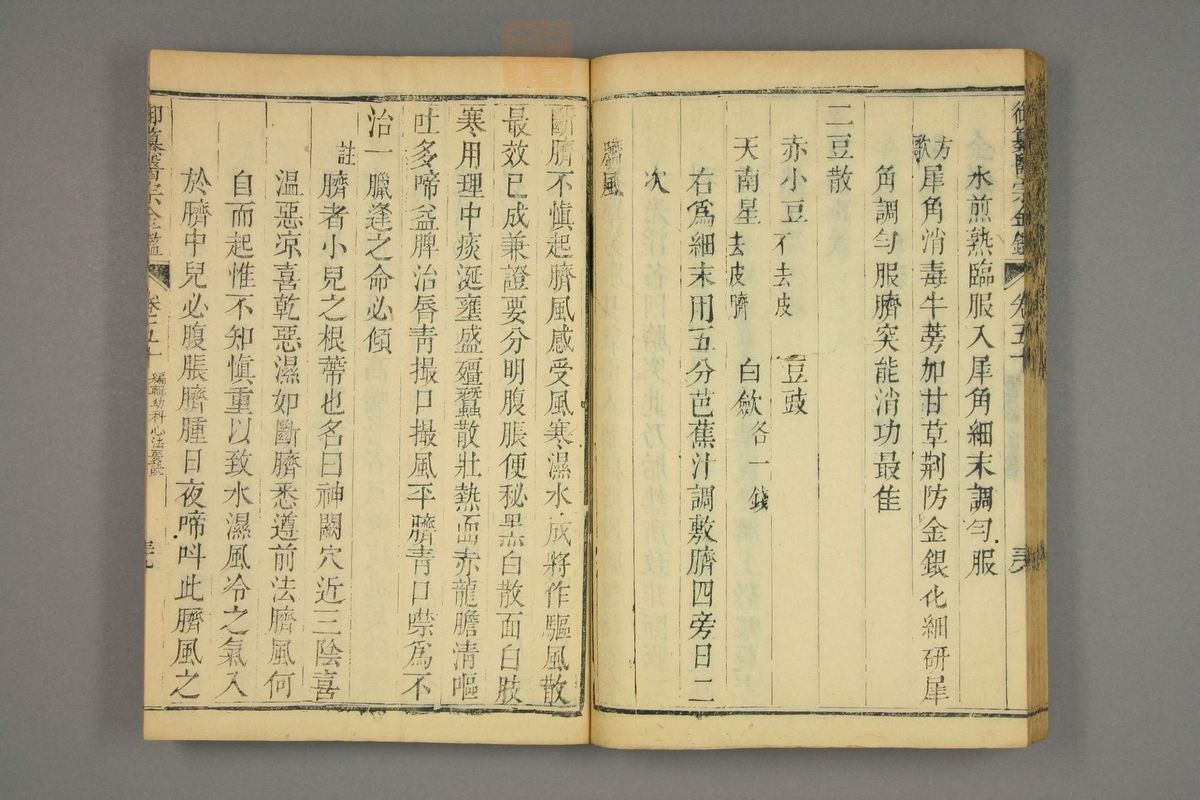 御纂醫宗金鑑 卷五十
水煎熟臨服入犀角細末調勻服
方歌 犀角消毒牛蒡加甘草荆防金銀化細研犀
角調勻服臍突能消功最隹
二豆散
赤小豆不去皮 豆豉
天南星去皮臍 白歛各一錢
右爲細末用五分芭蕉汁調敷臍四旁日二
次
臍風
斷臍不愼起臍風感受風寒濕水成將作驅風散
最效已成兼證要分明腹脹便秘黑白散面白肢
寒用理中痰涎壅盛殭蠶散壯熱面赤龍膽清嘔
吐多啼益脾治唇靑撮口撮風平臍靑口噤爲不
治一臘逢之命必傾
註 臍者小兒之根蒂也名曰神闕穴近三陰喜
温惡凉喜乾惡濕如斷臍悉遵前法臍風何
自而起惟不知愼重以致水濕風冷之氣入
於臍中兒必腹脹臍腫日夜啼叫此臍風之
御纂醫宗金鑑 卷五十 編輯幼科心法要訣